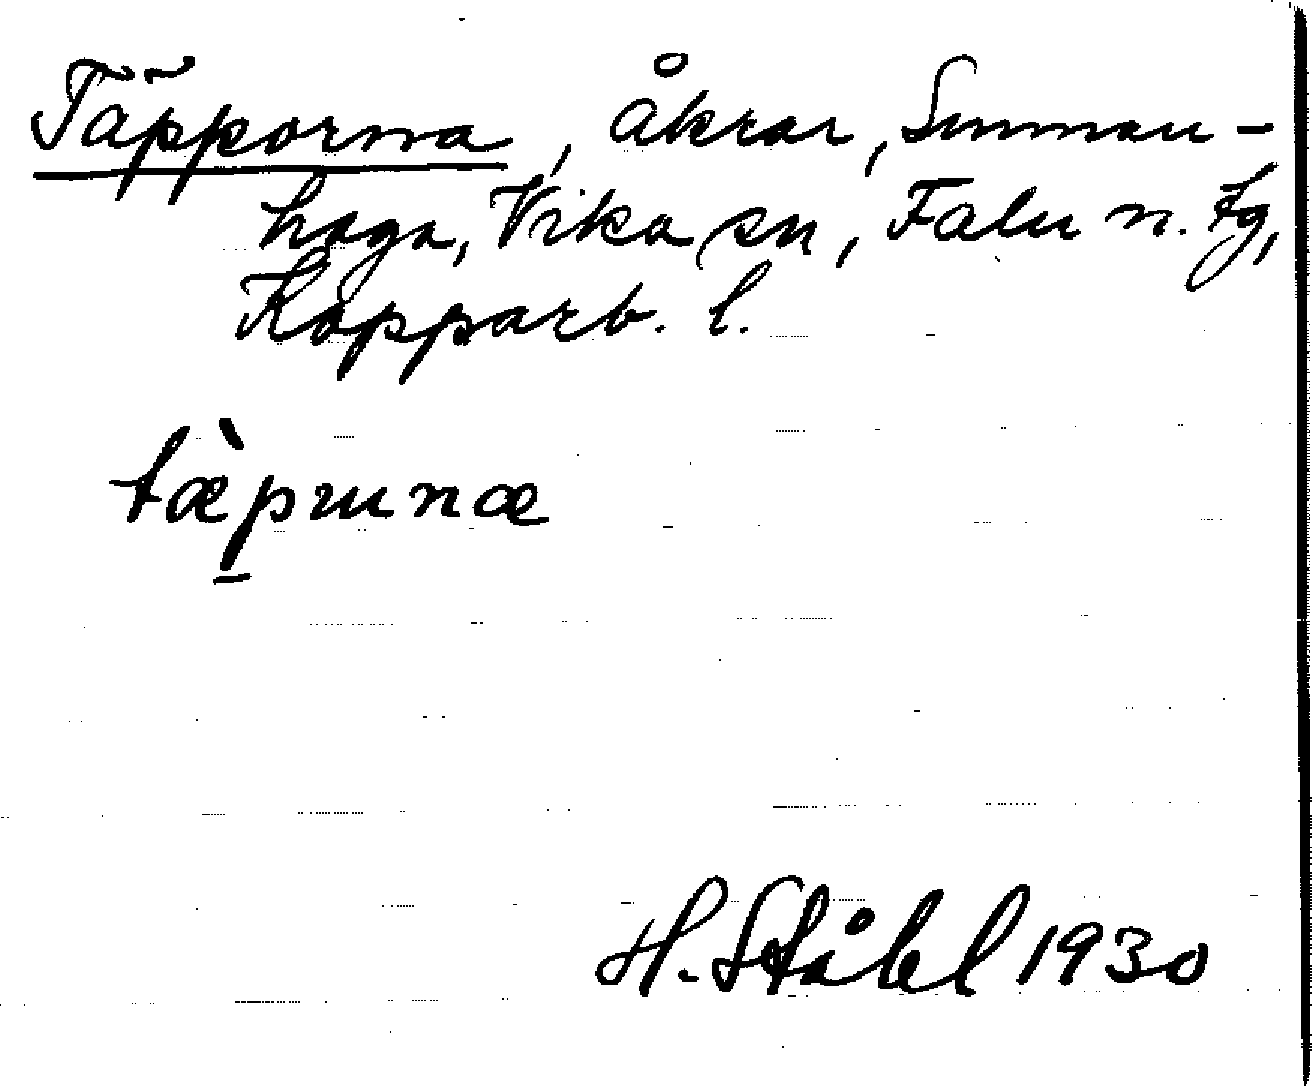 Täpporna, åkrar, Sunnan-
haga, Vika sn, Falu n. tg,
Kopparb. l.
tæ̀p̠runæ
H. Ståhl 1930